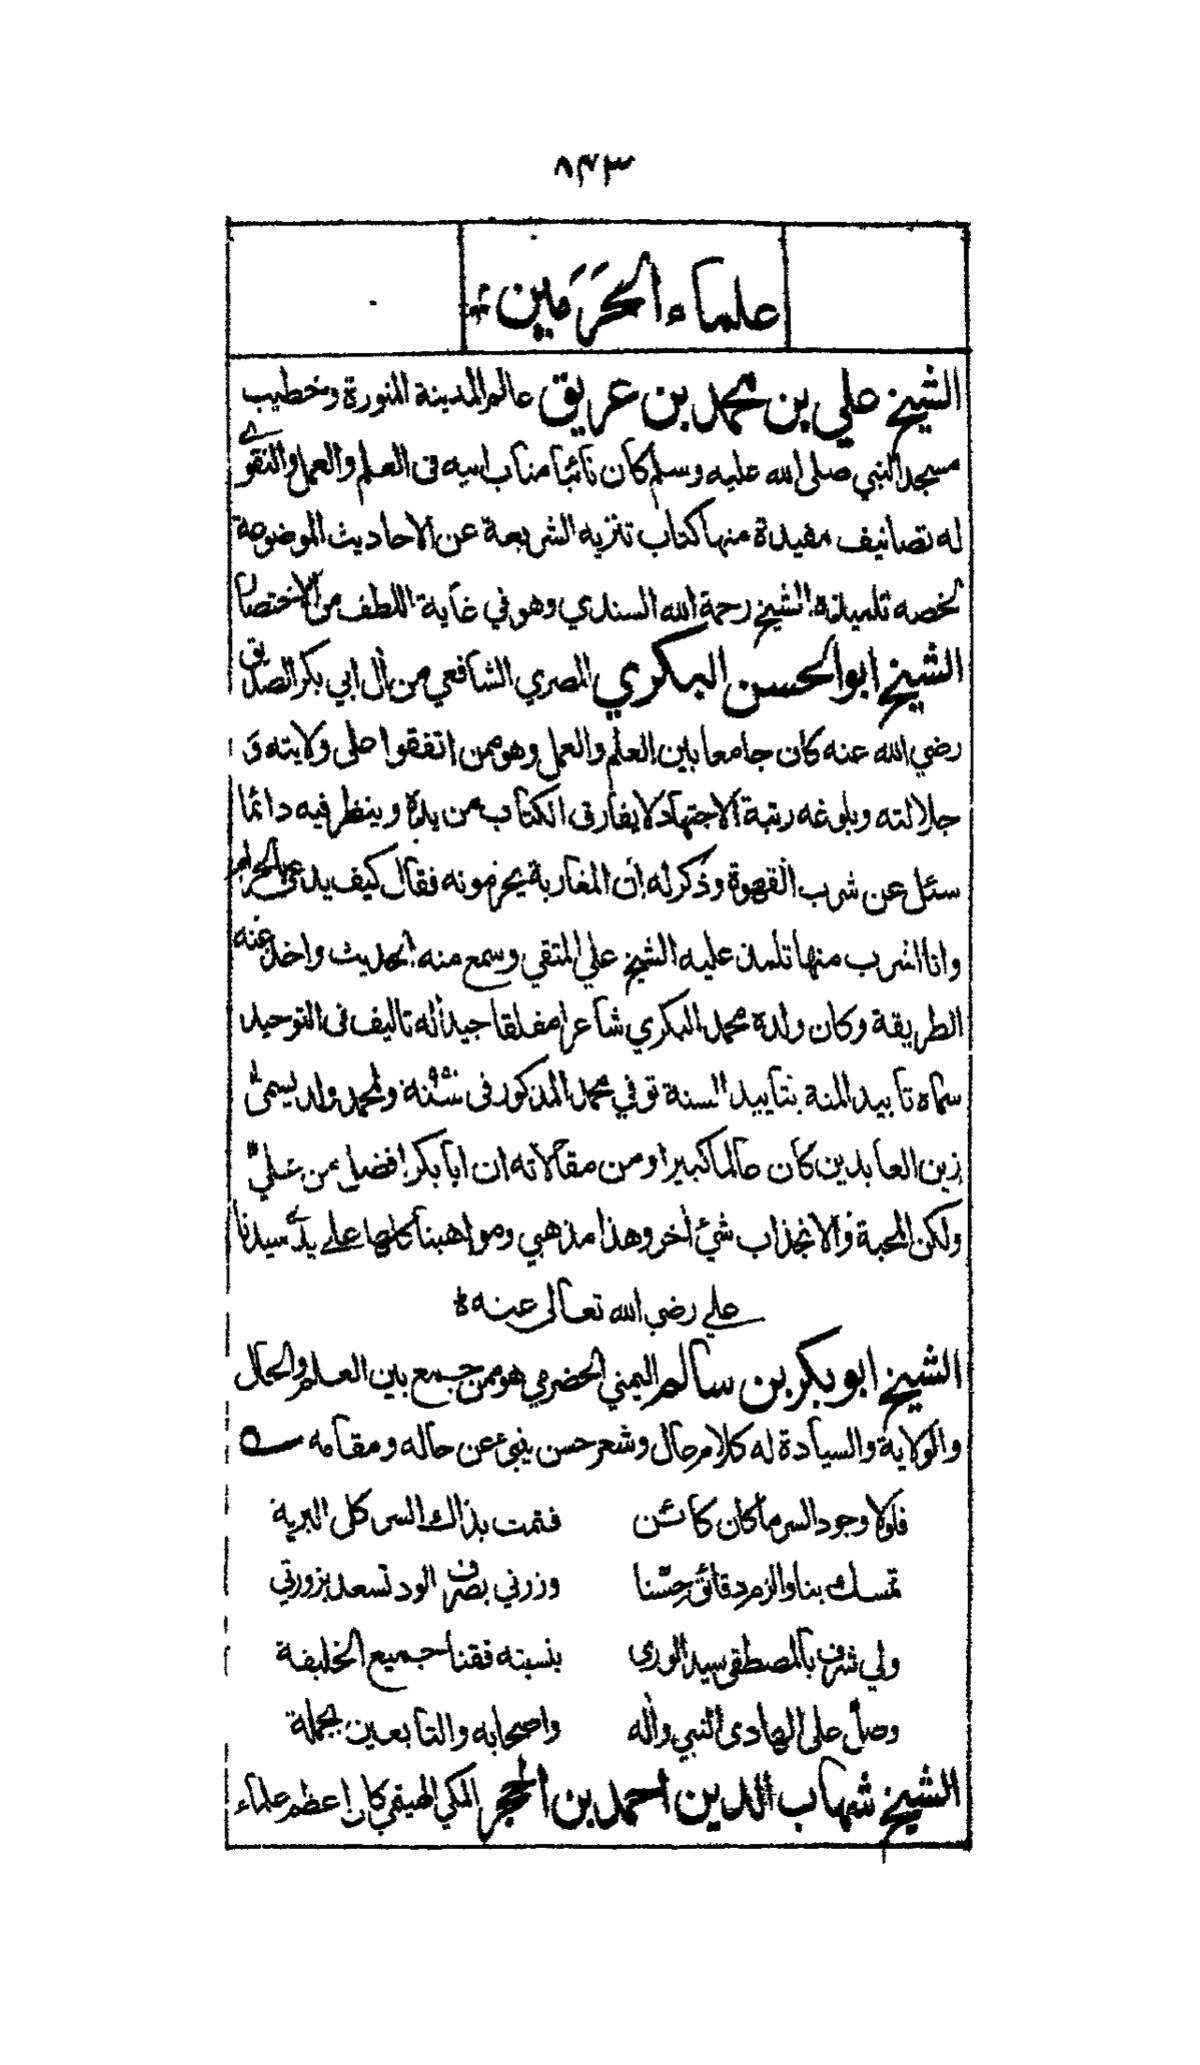 ٨٤٣
علماء الحَرَمين
الشيخ علي بن محمد بن عريق عالم المدينة المنورة وخطيب
مسجد النبي صلى الله عليه وسلم كان نائبا مناب ابيه فى العلم والعمل والتقوے
له تصانيف مفيدة منها كتاب تنزيه الشريعة عن الاحاديث الموضوعة
لخصه تلميذه الشيخ رحمة الله السندي وهو في غاية اللطف من الاختصار
الشيخ ابو الحسن البكري المصري الشافعي من أل ابي بكر الصديق
رضي الله عنه كان جامعا بين العلم والعمل وهو ممن اتفقوا على ولايته وَ
جلالته وبلوغه رتبة الاجتهاد لا يفارق الكتاب من يده وينظر فيه دائما
سئل عن شرب القهوة وذكر له ان المغاربة يحرمونه فقال كيف يدعى الحرام
وانا اشرب منها تلمذ عليه الشيخ علي المتقي وسمع منه الحديث واخذ عنه
الطريقة وكان ولده محمد البكري شاعرا مفلقا جيدا له تاليف فى التوحيد
سماه تابيد المنة بتاييد السنة توفي محمد المذكور فى سنة ولمحمد ولد يسمى
زين العابدين كان عالما كبيرا ومن مقالاته ان ابا بكر افضل من علي
ولكن المحبة والانجذاب شئ أخر وهذا مذهبي ومواهبنا كلها علے يدے سيدنا
علے رضي الله تعالى عنه
الشيخ ابو بكر بن سالم اليمني الحضرمي هو ممن جمع بين العلم والحال
والولاية والسيادة له كلام حال وشعر حسن ينبئ عن حاله ومقامه
فلولا وجود السر ما كان كائن فتمت بذاك السر كل البرية
تمسك بنا والزم دقائق حسّنا وزرني بصرف الود تسعد بزورتي
ولي شرف بالمصطفى سيد الورى بنسبته فقنا جميع الخليفة
وصل على الهادى النبي وأله واصحابه والتابعين بجملة
الشيخ شهاب الدين احمد بن الحجر المكي الهيتمي كان اعظم علماء